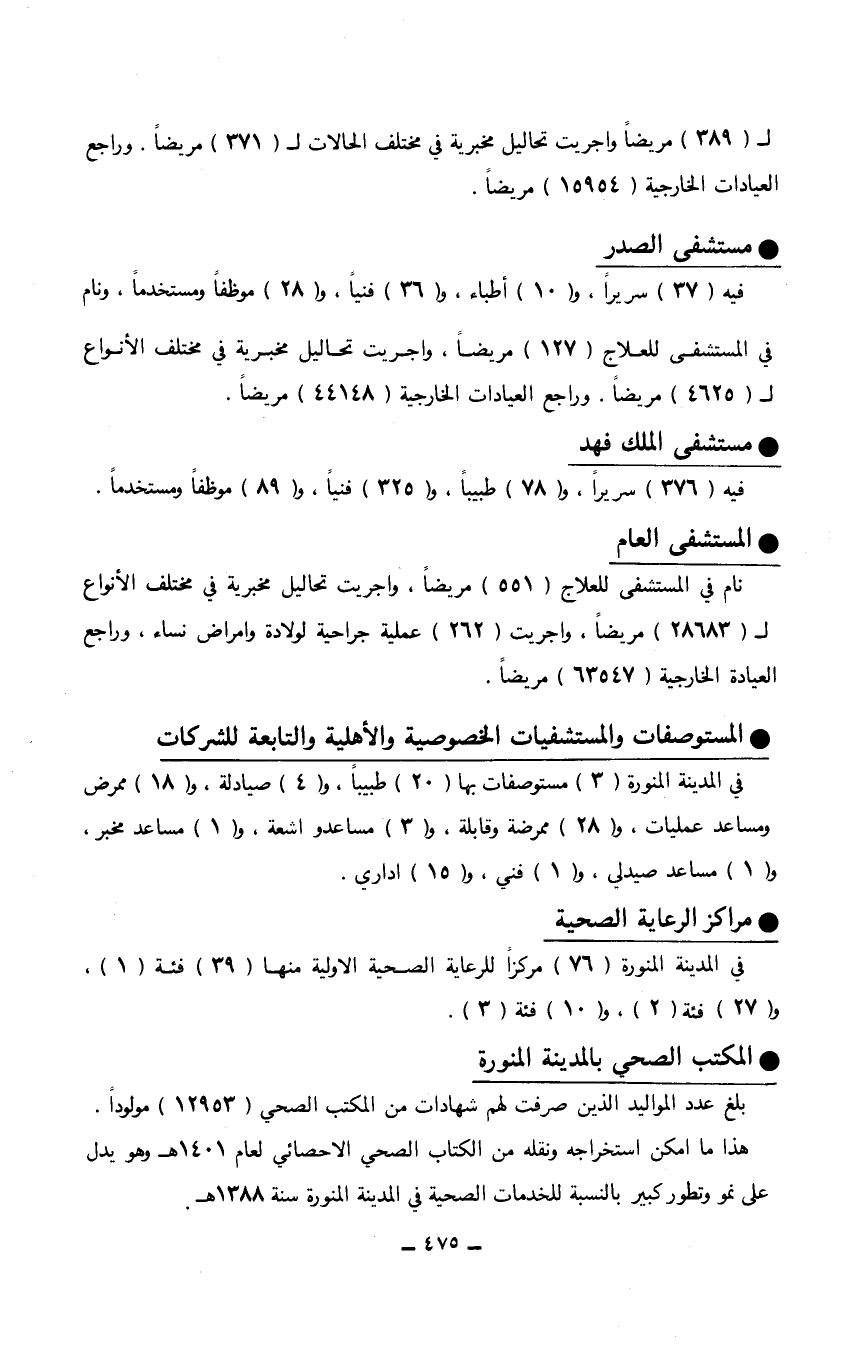 لـ ( ٣٨٩ ) مريضاً واجريت تحاليل مخبرية في مختلف الحالات لـ ( ٣٧١ ) مريضاً . وراجع
العيادات الخارجية ( ١٥٩٥٤ ) مريضاً .
● مستشفى الصدر
فيه ( ٣٧ ) سريراً ، و( ١٠ ) أطباء ، و( ٣٦ ) فنياً ، و( ٢٨ ) موظفاً ومستخدماً ، ونام
في المستشفى للعلاج ( ١٢٧ ) مريضاً ، واجريت تحاليل مخبرية في مختلف الأنواع
لـ ( ٤٦٢٥ ) مريضاً . وراجع العيادات الخارجية ( ٤٤١٤٨ ) مريضاً .
● مستشفى الملك فهد
فيه ( ٣٧٦ ) سريراً ، و( ٧٨ ) طبيباً ، و( ٣٢٥ ) فنياً ، و( ٨٩ ) موظفاً ومستخدماً .
● المستشفى العام
نام في المستشفى للعلاج ( ٥٥١ ) مريضاً ، واجريت تحاليل مخبرية في مختلف الأنواع
لـ ( ٢٨٦٨٣ ) مريضاً ، واجريت ( ٢٦٢ ) عملية جراحية لولادة وامراض نساء ، وراجع
العيادة الخارجية ( ٦٣٥٤٧ ) مريضاً .
● المستوصفات والمستشفيات الخصوصية والأهلية والتابعة للشركات
في المدينة المنورة ( ٣ ) مستوصفات بها ( ٢٠ ) طبيباً ، و( ٤ ) صيادلة ، و( ١٨ ) ممرض
ومساعد عمليات ، و( ٢٨ ) ممرضة وقابلة ، و( ٣ ) مساعدو اشعة ، و( ١ ) مساعد مخبر ،
و( ١ ) مساعد صيدلي ، و( ١ ) فني ، و( ١٥ ) اداري .
● مراكز الرعاية الصحية
في المدينة المنورة ( ٧٦ ) مركزاً للرعاية الصحية الاولية منها ( ٣٩ ) فئة ( ١ ) ،
و( ٢٧ ) فئة ( ٢ ) ، و( ١٠ ) فئة ( ٣ ) .
● المكتب الصحي بالمدينة المنورة
بلغ عدد المواليد الذين صرفت لهم شهادات من المكتب الصحي ( ١٢٩٥٣ ) مولوداً .
هذا ما امكن استخراجه ونقله من الكتاب الصحي الاحصائي لعام ١٤٠١هـ وهو يدل
على نمو وتطور كبير بالنسبة للخدمات الصحية في المدينة المنورة سنة ١٣٨٨هـ .
ـ ٤٧٥ ـ